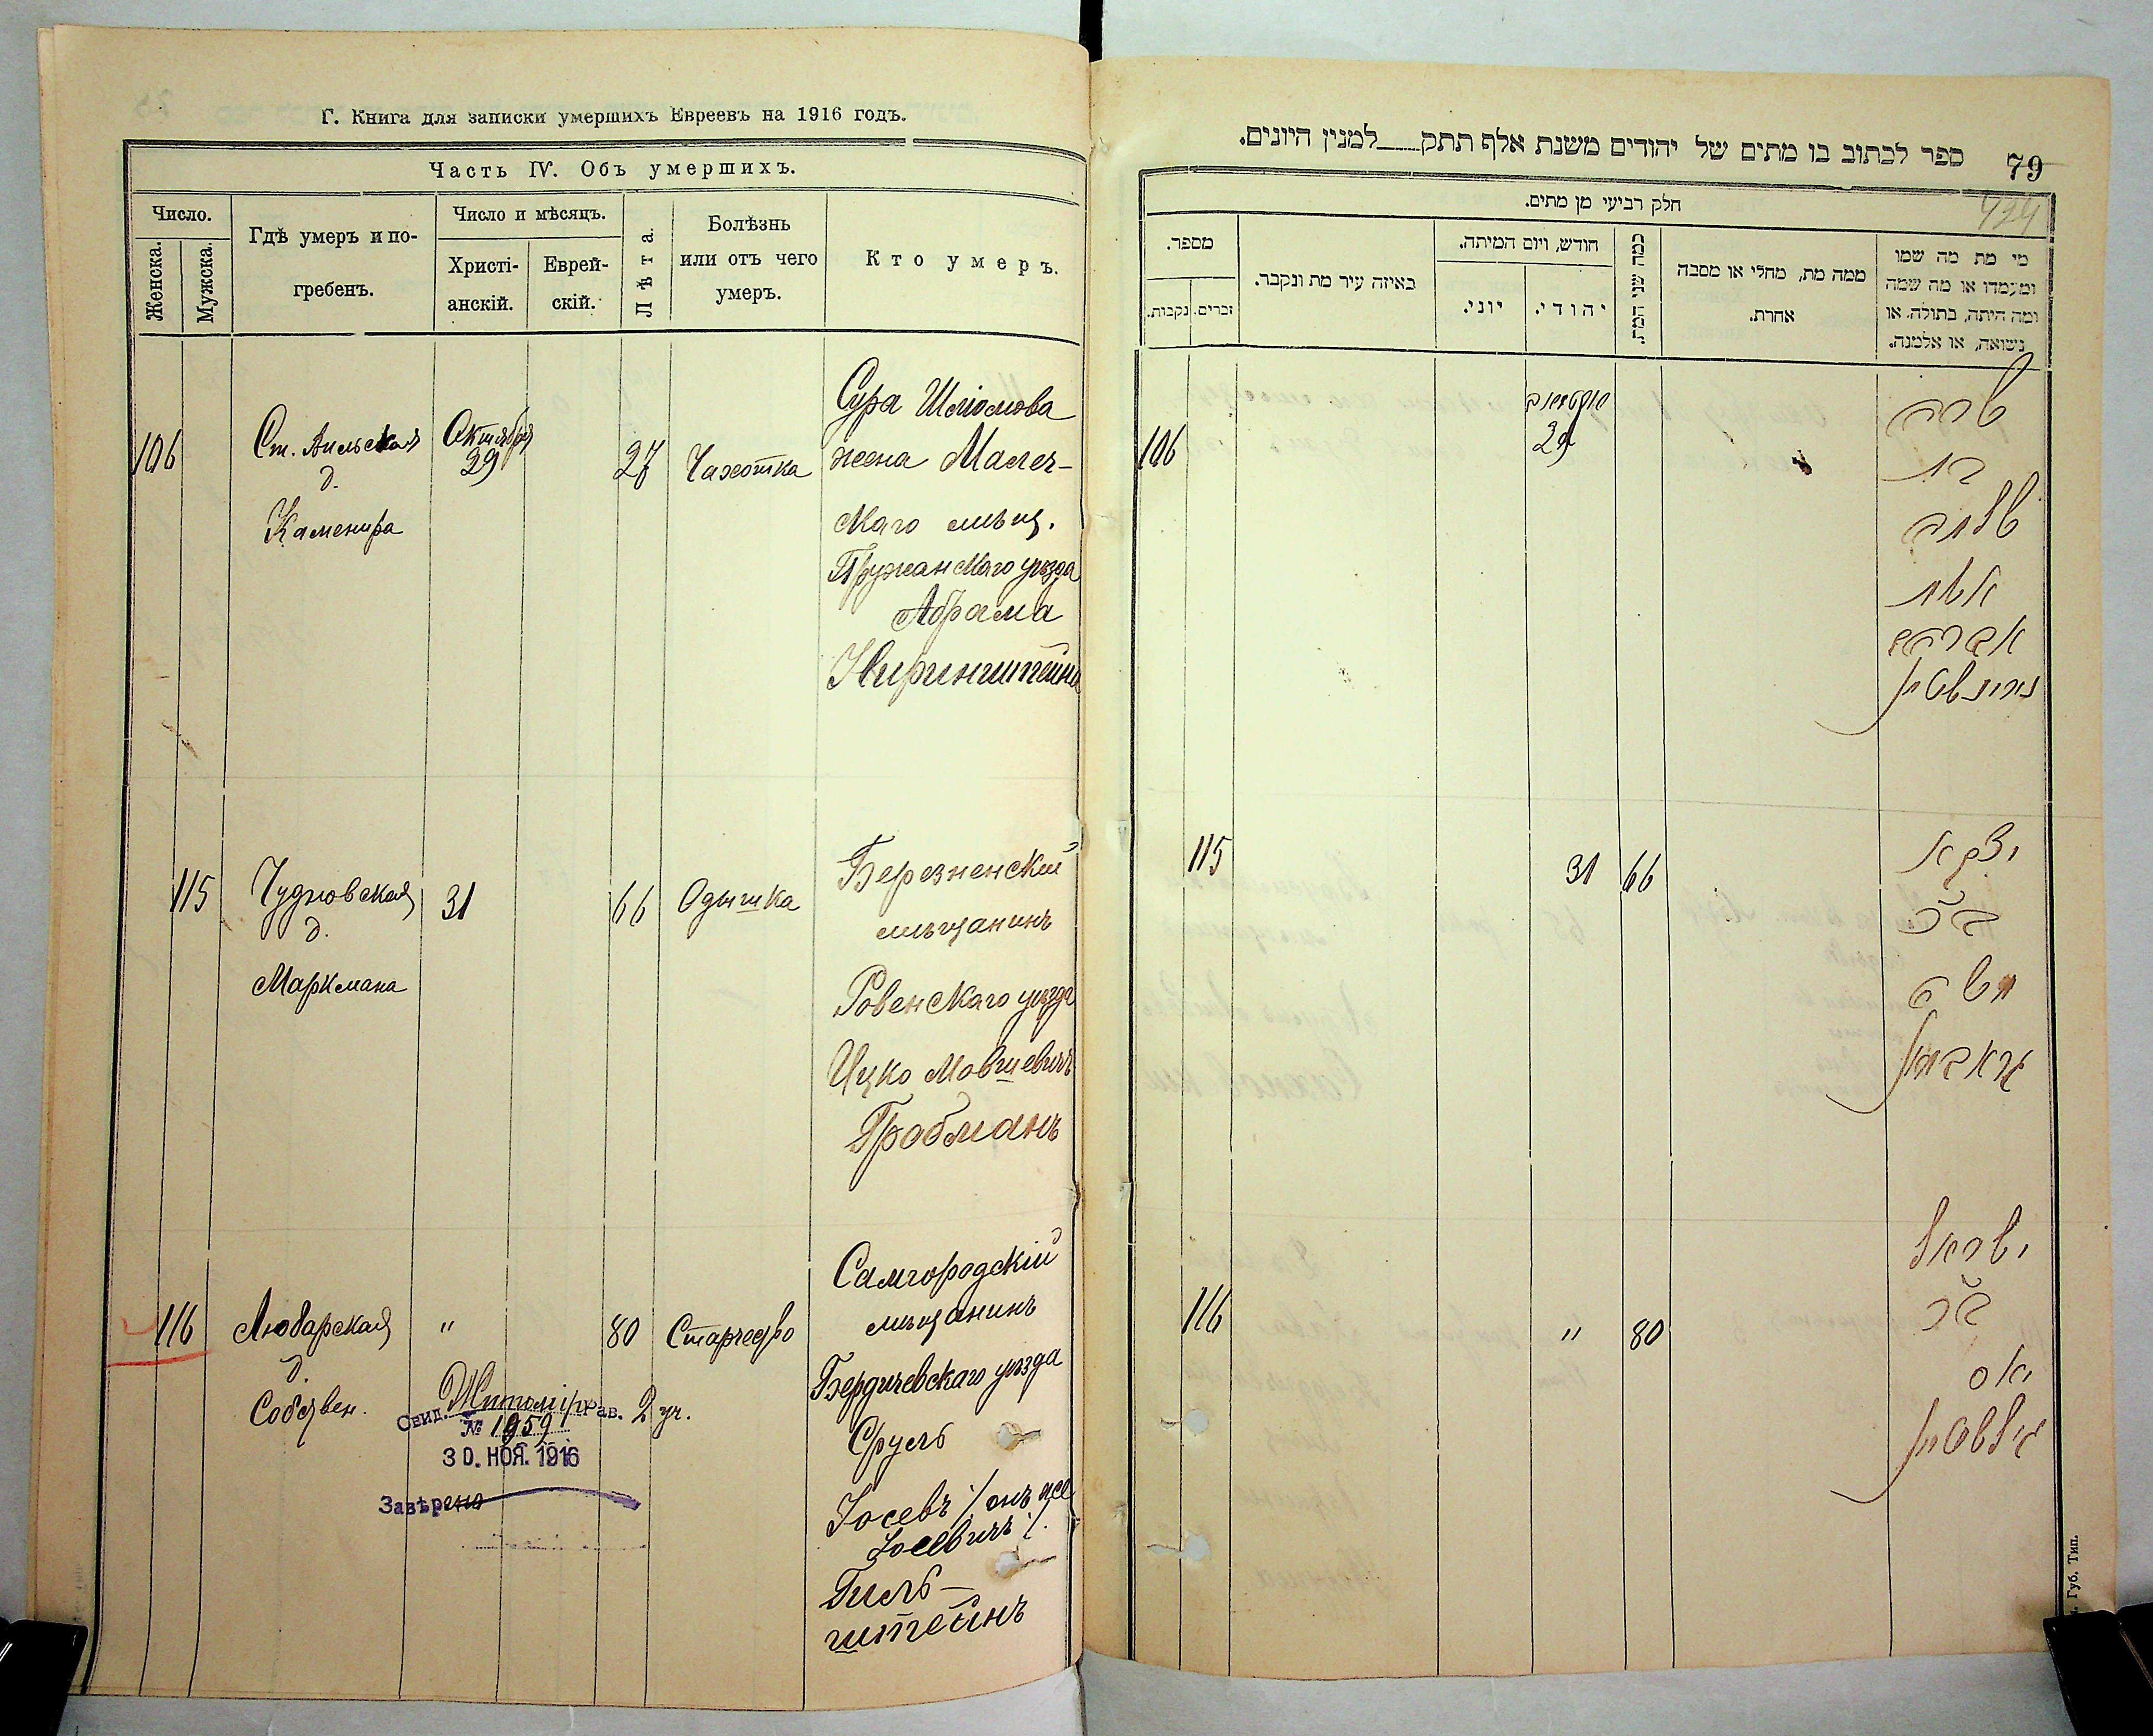 Г. Книга для записки умершихъ Евреевъ на 1916 годъ.
Часть IV. Объ умершихъ.
Число.
Женска.
Мужска.
Гдѣ умеръ и по-
гребенъ.
Число и мѣсяцъ.
Христі-
анскій.
Еврей-
скій.
Лѣта.
Болѣзнь
или отъ чего
умеръ.
Кто умеръ.
106
Ст.
д.
Каменира
Октября
29
27
Чахотка
Сура Шліомова
жена Малеч-
скаго мѣщ.
Пружанскаго уѣзда
Абрама
Нирингштейна
115
Чудновская
д.
Маркмана
31
66
Одышка
Березненскій
мѣщанинъ
Ровенскаго уѣзда
Ицко Мовшевичъ
Гробманъ
116
Любарская
д.
Собствен.
"
80
Старчество
Самгородскій
мѣщанинъ
Бердичевскаго уѣзда
Сруль
Іосевъ /онъ же
Іосевичъ/.
Гиль-
штейнъ
Свид. Житомір Рав. 2 уч.
№ 1959
30. НОЯ. 1916
Завѣрено
79
ספר לכתוב בו מתים של יהודים משנת אלף תתק למנין היונים.
חלק רביעי מן מתים.
מספר.
נקבות.
זכרים.
באיזה עיר מת ונקבר.
חודש, ויום המיתה.
יוני.
יהודי.
כמה שני המת.
ממה מת, מחלי או מסבה
אחרת.
מי מת מה שמו
ומעמדו או מה שמה
ומה היתה, בתולה, או
נשואה, או אלמנה.
106
29
שרה
בת
שלמה
אשת
אברהם
115
31
66
יצקא
ב״ר
משה
גראבמאן
116
"
80
ישראל
ב״ר
יאס
גילשטיין
Губ. Тип.